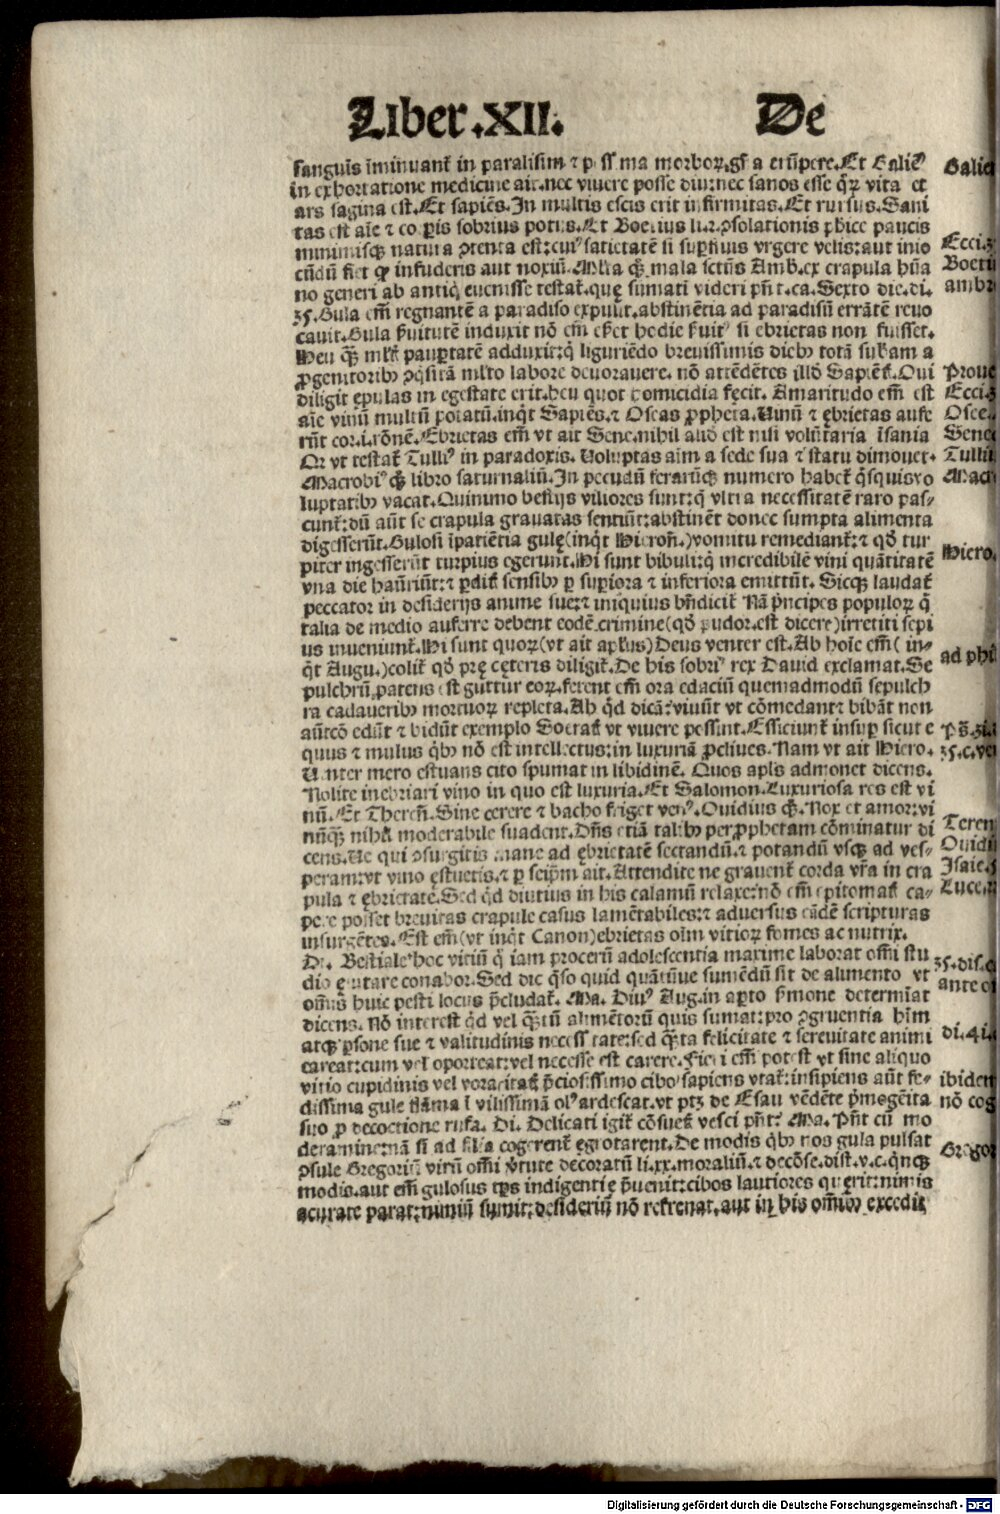 Liber .XII. De
sanguis īminuant᷑ in paralisim ⁊ morboꝝ erūpere. Et Galieꝰ
in exhortatione medicine ait. nec vivere posse diu: nec sanos esse qͦꝝ vita et
ars sagina est. Et sapiēs. In multis escis erit infirmitas. Et rursus. Sani
tas est aīe ⁊ corꝑis sobrius potus. Et Boetius li.2. ꝯsolationis ꝓhice paucis
minimisqꝫ natura ꝯtenta est: cuiꝰ satietatē si suꝑfluis vrgere velis: aut inio
cūdū fiet qꝫ infuderis aut noxiū. Mľta qꝫ mala sctūs Amb. ex crapula hūa
no generi ab antiq̇ euenisse testat᷑. quę sumati videri pn̄t. ca. Sexto die. di.
35. Gula em̄ regnantē a paradiso expulit. abstinētia ad paradisū errātē reuo
cauit. Gula ẜuitutē induxit nō em̄ eēt hodie ẜuitꝰ si ebrietas non fuisset.
Heu qꝫ̄ mľt᷑ pauꝑtatē adduxit: q̇ liguriēdo breuissimis diebꝰ totā sub̄am a
ꝓgenitoribꝰ ꝯq̇sitā mľto labore deuorauere. nō attēdētes illḋ Sapiēt᷑. Qui
diligit epulas in egestate erit. heu quot homicidia fecit. Amaritudo em̄ est
aīe vinū multū potatū. inq̇t Sapiēs. ⁊ Oseas ꝓpheta. Uinū ⁊ ębrietas aufe
rūt cor. i. rōnē. Ebrietas em̄ vt ait Sene. nihil aliḋ est nisi volūtaria īsania
Or vt testat᷑ Tulliꝰ in paradoxis. Voluptas aīm a sede sua ⁊ statu dimouet.
Macrobiꝰ qꝫ libro saturnaliū. In pecudū ferarūqꝫ numero habet᷑ q̇squis vo
luptatibꝰ vacat. Quinimo bestijs viliores sunt: q̇ vltra necessitatē raro pas-
cunt᷑: dū aūt se crapula grauatas sentiūt: abstinēt donec sumpta alimenta
digesserūt. Gulosi īpatiētia gulę (inq̇t Hieron̄.) vomitu remediant᷑: ⁊ qḋ tur
piter ingesserūt turpius egerunt. Hi sunt bibuli: q̇ incredibilē vini quātitatē
vna die hauriūt: ⁊ ꝑdit᷑ sensibꝰ ꝑ suꝑiora ⁊ inferiora emittūt. Sicqꝫ laudat᷑
peccator in desiderijs anime sue: ⁊ iniquius bn̄dicit᷑ Nā pͥncipes populoꝝ q̇
talia de medio auferre debent eodē crimine (qḋ pudor. est dicere) irretiti sępi
us inueniunt᷑. Hi sunt quoꝝ (vt ait apľus) Deus venter est. Ab hoīe em̄ (in-
q̇t Augu.) colit᷑ qḋ prę cęteris diligit᷑. De his sobriꝰ rex Dauid exclamat. Se
pulchrū patens est guttur eoꝝ. ferent em̄ ora edaciū quemadmodū sepulch
ra cadaueribꝰ mortuoꝝ repleta. Ab q̇d dicā: viuūt vt cōmedant ⁊ bibāt non
aūt eō edūt ⁊ bibūt exemplo Socrat᷑ vt vivere possint. Efficiunt᷑ insuꝑ sicut e
quus ⁊ mulus q̇bꝰ nō est intellectus: in luxuriā ꝓclives. Nam vt ait Hiero.
Uenter mero estuans cito spumat in libidinē. Quos apľs admonet dicens.
Nolite inebriari vino in quo est luxuria. Et Salomon. Luxuriosa res est vi
nū. Et Theren̄. Sine cerere ⁊ bacho friget venꝰ. Ouidius qꝫ. Nox et amor: vi
nūqꝫ nihil moderabile suadent. Dn̄s etiā talibꝰ per ꝓphetam cōminatur di
cens. Ue qui ꝯsurgitis mane ad ębrietatē sectandū. ⁊ potandū vsqꝫ ad ves-
peram: vt vino ęstuetis. ⁊ ꝑ seip̄m ait. Attendite ne grauent᷑ corda vr̄a in cra
pula ⁊ ębrietate. Sed q̇d diutius in his calamū relaxe: nō em̄ epitomat᷑ ca-
pere posset breuitas crapule casus lamētabiles: ⁊ adversus eādē scripturas
insurgētes. Est em̄ (vt inq̇t Canon) ebrietas oīm vitioꝝ fomes ac nutrix.
Di. Bestiale hoc vitiū q̇ iam procerū adolescentia maxime laborat om̄i stu
dio euitare conabor. Sed dic q̄so quid quātūue sumēdū sit de alimento vt
om̄is huic pesti locus p̄cludat᷑. Ma. Diuꝰ Aug. in aꝑto ẜmone determīat
dicens. Nō interest q̇d vel qꝫ̄tū alimētorū quis sumat: pro ꝯgruentia hīm
atqꝫ ꝑsone sue ⁊ valitudinis necessitate: sed qꝫ̄ta felicitate ⁊ serenitate animi
careat: cum vel oporteat: vel necesse est carere. Fieri em̄ potest vt sine aliquo
vitio cupidinis vel voracitat᷑ p̄ciosissimo cibo sapiens vtat᷑: insipiens aūt fe-
dissima gule flāma ī vilissimā olꝰ ardescat. vt ptꝫ de Esau vēdēte pͥmogēita
suo ꝑ decoctione rufa. Di. Delicati igit᷑ cōsuet᷑ vesci pn̄t? Ma. Pn̄t cū mo
deramine: nā si ad alia cogerent᷑ ęgrotarent. De modis q̇bꝰ nos gula pulsat
ꝯsule Gregoriū virū om̄i v̇tute decoratū li. xx. moraliū. ⁊ de cōse. dist. v. c. q̇nqꝫ
modis. aut em̄ gulosus tꝑs indigentię p̄uenit: cibos lautiores quęrit: nimis
acurate parat: nimiū sumit: desideriū nō refrenat. aut in his om̄ibꝰ excedit
Galie
Ecci.
Boeti
ambr
Proue
Ecci.
Osee.
Sene
Tulli
Macr
Hiero.
ad phi
35. c. ve
Teren
Ouidi
Isaie.
Luce.
35. dis.
ante
di. 41.
ibidem
nō cog
Gregor
Digitalisierung gefördert durch die Deutsche Forschungsgemeinschaft - DFG